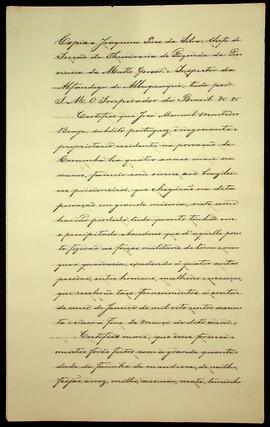 Copia = Joaquim Pires da Silva, Chefe de
Secção da Thesouraria de Fazenda da Pro
vincia de Matto Grosso, e Inspector da
Alfandega de Albuquerque, tudo por
S. M. O Imperador do Brasil &c &c
Certifico que José Manuel Monteiro
Braga, subdito portuguez, e negociante e
proprietario residente na povoação de
Corumbá ha quatro annes mais ou
menos, forneceu em viveres aos brazilei
ros prisioneiros, que chegárão na dita
povoação em grande miseria, visto como
havião perdido tudo quanto tinhão em
o precipitado abandono que d'aquelle pon
to, fizerão as forças militares de terra e mar
que o guarnecia, excedendo á quatro centas
pessoas, entre homens, mulheres e crianças,
que receberão taes fornecimentos a contar
de cinco de Janeiro de mil oito centos sessen
ta e cinco a fins de Março do dito anno.
Certifico mais, que esses forneci
mentos forão feitos com a grande quanti
dade de farinha de mandioca, de milho,
feijão, arroz, milho, assucar, mate, toucinho